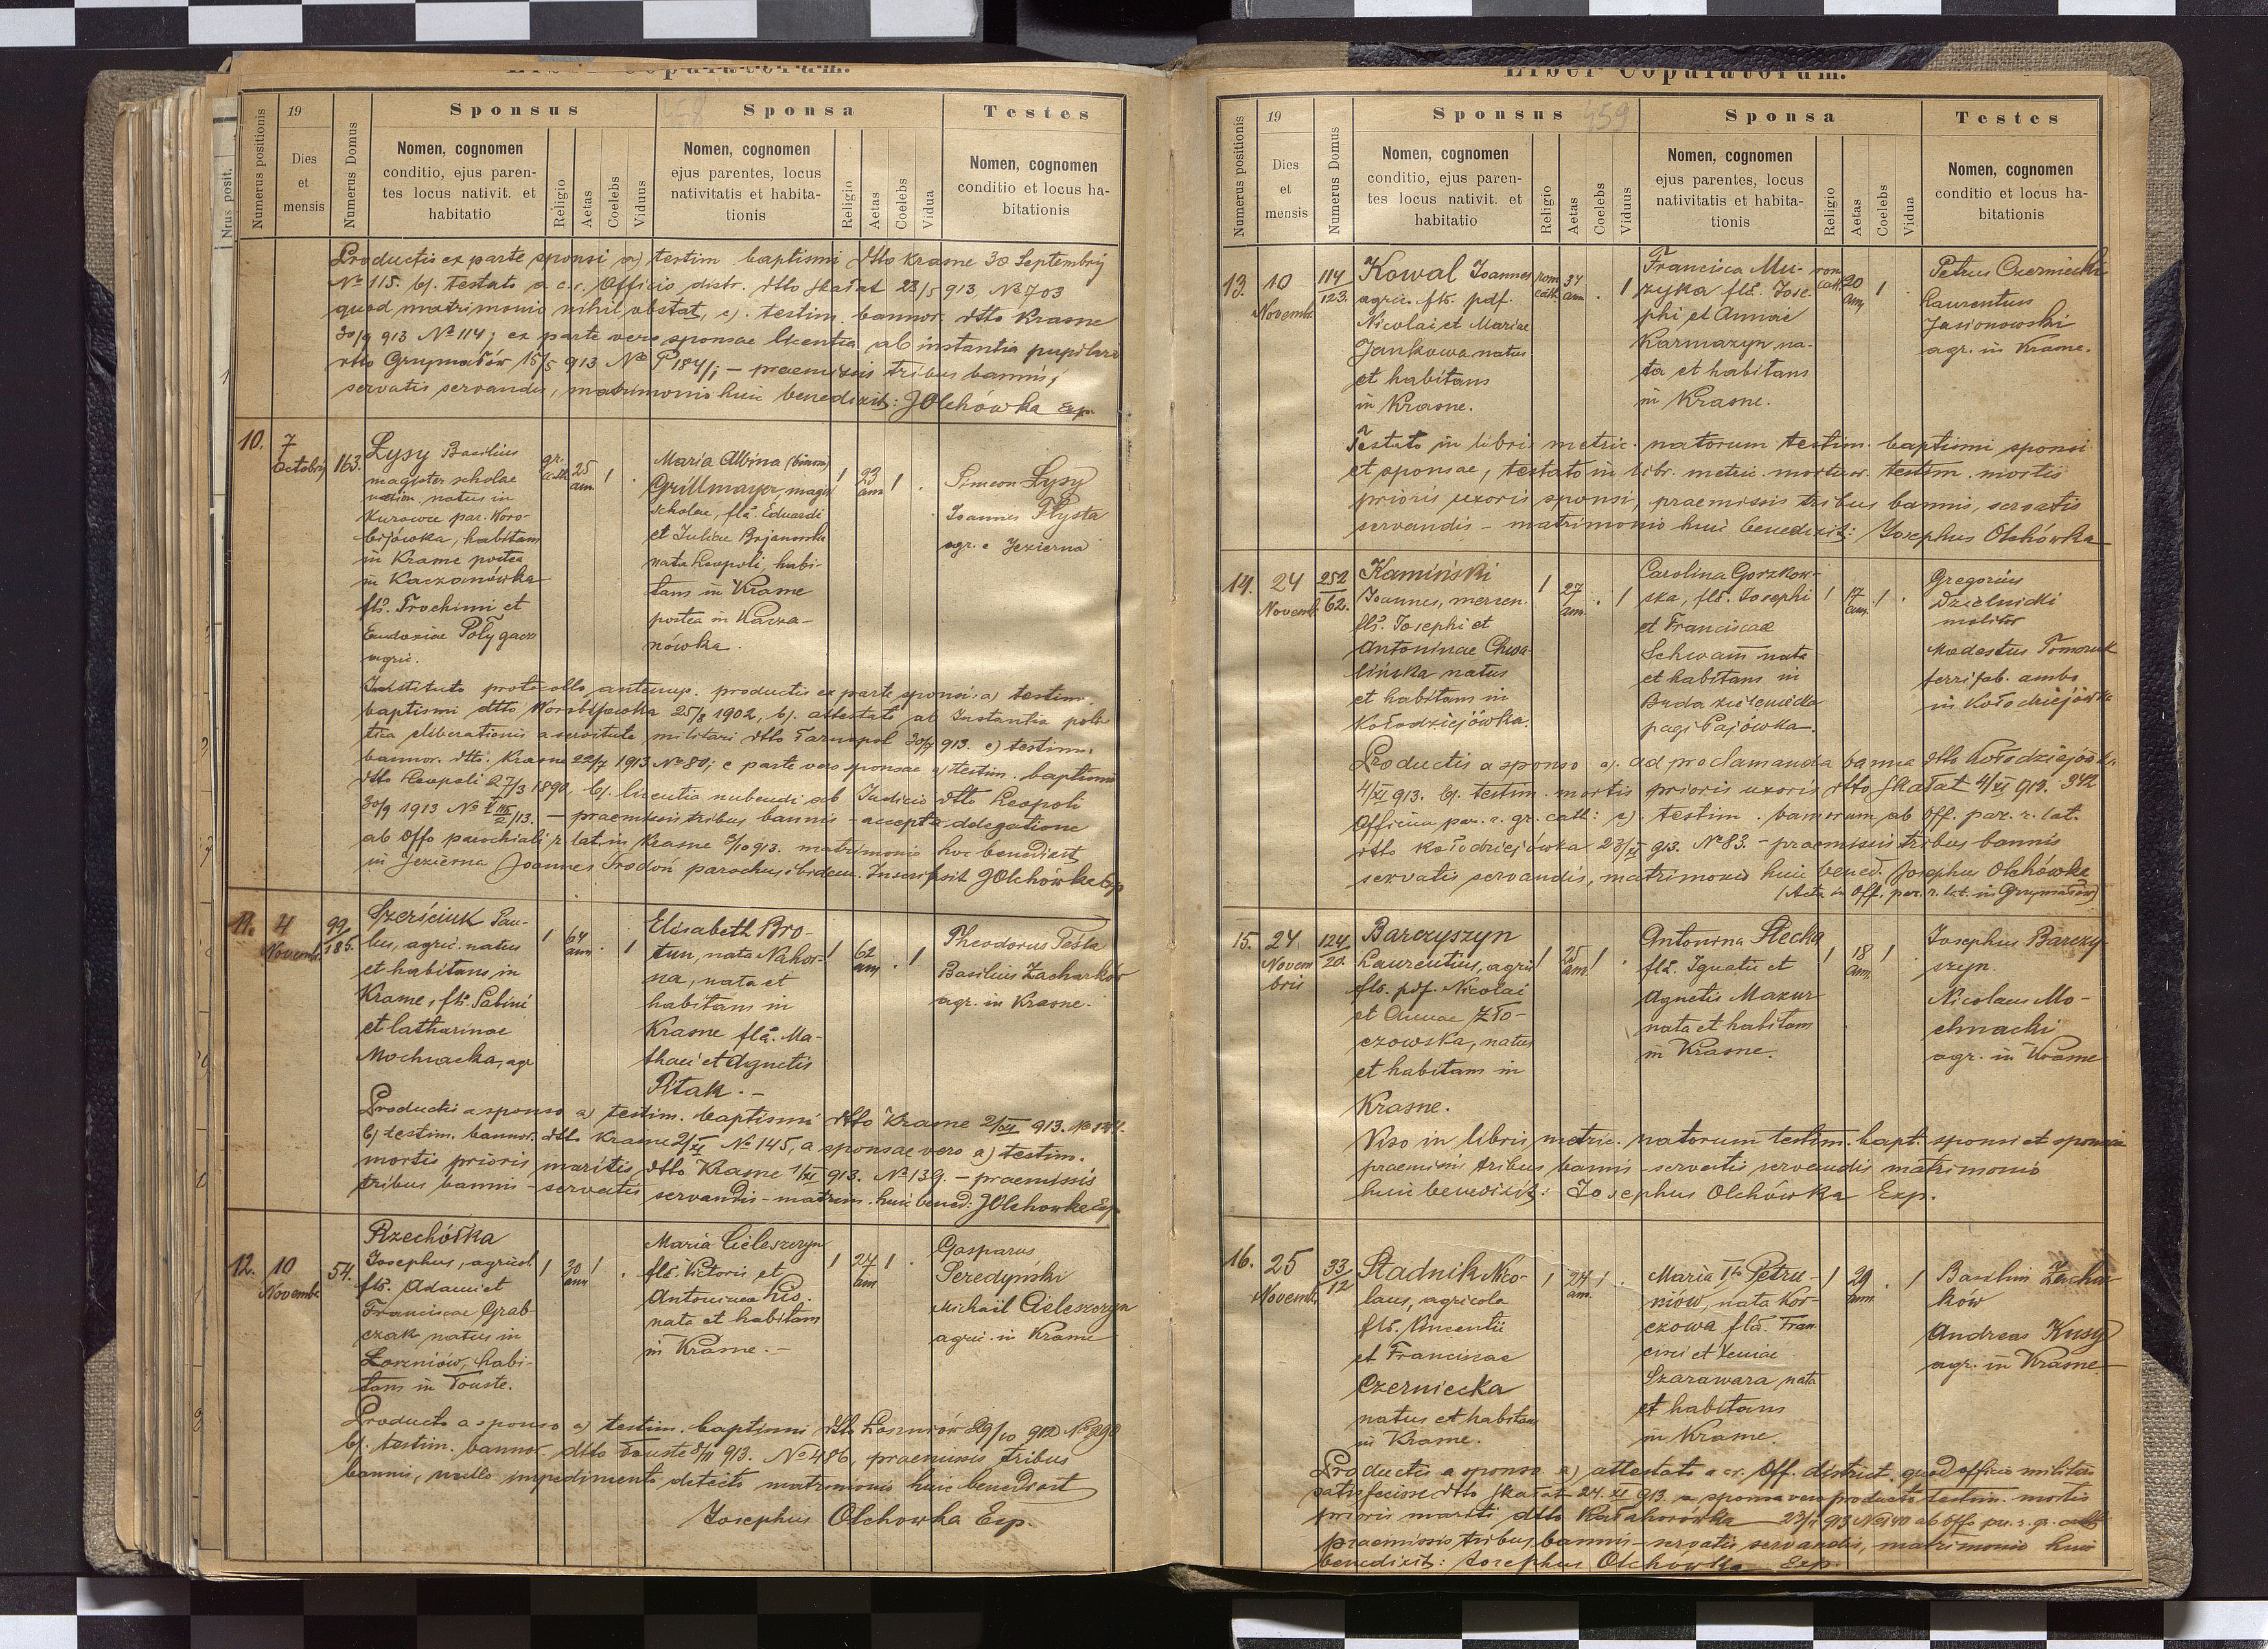 Liber Copulatorum.
Nrus posit.
Numerus positionis
19
Dies
et
mensis
Numerus Domus
Sponsus
Nomen, cognomen
conditio, ejus paren-
tes locus nativit. et
habitatio
Religio
Aetas
Coelebs
Viduus
Sponsa
Nomen, cognomen
ejus parentes, locus
nativitatis et habita-
tionis
Religio
Aetas
Coelebs
Vidua
Testes
Nomen, cognomen
conditio et locus ha-
bitationis
Productis ex parte sponsi a) testim baptismi dtto Krasne 30 Septembrij
№ 115. b). testato a c. r. Officio distr. dtto Skałat 23/5 913 № 703
quod matrimonio nihil obstat, c). testim. bannor. dtto Krasne
30/9 913 № 114; ex parte vero sponsae licentia ab instantia pupilari
dtto Grzymałów 15/5 913 № P 184/1 – praemissis tribus bannis,
servatis servandis, matrimonio huic benedixit: JOlchówka Exp.
10.
7
Octobrij
163.
Łysy Basilius
magister scholae
natus in
Kurowce par. Woro-
bijówka, habitans
in Krasne postea
in Kaczanówka
fls. Trochimi et
Eudoxiae Polygacz
agric.
gr.
cath
25
ann.
1
Maria Albina (binom)
Grillmayer, magis
scholae, fla. Eduardi
et Juliae Bojanowska
nata Leopoli, habi-
tans in Krasne
postea in Kacza-
nówka.
1
23
ann
1
Simeon Łysy
Joannes Płysta
agr. e Jezierna
Instituto protocollo antenup. productis ex parte sponsi: a) testim.
baptismi dtto Worobijówka 25/8 1902, b). attestato ab Instantia poli-
tica eliberationis a servitute militari dtto Tarnopol 913. c) testim.
bannor. dtto. Krasne 22/7 1913 № 80; e parte vero sponsae a) testim. baptismi
dtto Leopoli 27/3 1890, b). licentia nubendi ab Judicio dtto Leopoli
30/9 1913 – praemissis tribus bannis – accepta delegatione
ab Offo parochiali r. lat. in Krasne 5/10 913. matrimonio hoc benedixit
in Jezierna Joannes Środoń parochus ibidem. Inscripsit JOlchówka Exp
11.
4
Novemb.
99/186.
Szerściuk Pau-
lus, agric. natus
et habitans in
Krasne, fls. Sabini
et Catharinae
Mochnacka, agr
1
64
ann
1
Elisabeth Bro-
tun, nata Nahor-
na, nata et
habitans in
Krasne fla. Ma-
thaei et Agnetis
Ptak. –
1
62
ann
1
Theodorus Tesla
Basilius Zacharków
agr. in Krasne.
Productis a sponso a) testim. baptismi dtto Krasne 2/XI 913. № 144.
b) testim. bannor. dtto Krasne 2/XI № 145, a sponsae vero a) testim.
mortis prioris maritis dtto Krasne 1/XI 913. № 139. – praemissis
tribus bannis – servatis servandis – matrim. huic bened: JOlchowka Exp
12.
10
Novemb
54.
Rzechółka
Josephus, agricol.
fls. Adami et
Franciscae Grab-
czak natus in
Łoszniów, habi-
tans in Touste.
1
30
ann
1
Maria Cieleszczyn
fla. Victoris et
Antoninae Lis.
nata et habitans
in Krasne. –
1
24
ann
1
Gasparus
Seredyński
Michail Cieleszczyn
agric. in Krasne
Producto a sponso a) testim. baptismi dtto Łoszniów 29/10 912 № 298
b). testim. bannor. dtto Touste 8/11 913. № 486, praemissis tribus
bannis, nullo impedimento detecto matrimonio huic benedixit
Josephus Olchowka Exp.
Liber Copulatorum.
459
Numerus positionis
19
Dies
et
mensis
Numerus Domus
Sponsus
Nomen, cognomen
conditio, ejus paren-
tes locus nativit. et
habitatio
Religio
Aetas
Coelebs
Viduus
Sponsa
Nomen, cognomen
ejus parentes, locus
nativitatis et habita-
tionis
Religio
Aetas
Coelebs
Vidua
Testes
Nomen, cognomen
conditio et locus ha-
bitationis
13.
10
Novemb
114/123.
Kowal Joannes
agric. fls. pdf.
Nicolai et Mariae
Jankowa natus
et habitans
in Krasne.
rom
cath
34
ann
1
Francisca Mu-
zyka fla. Jose-
phi et Annae
Karmazyn na-
ta et habitans
in Krasne.
rom
cath.
20
ann
1
Petrus Czerniecki
Laurentius
Jasionowski
agr. in Krasne.
Testato in libris metric. natorum testim. baptismi sponsi
et sponsae, testato in libr. metric. mortuor. testim. mortis
prioris uxoris sponsi, praemissis tribus bannis, servatis
servandis – matrimonio huic benedixit: Josephus Olchówka
14.
24
Novemb.
252/62.
Kamiński
Joannes, mercen.
fls. Josephi et
Antoninae Chwa-
lińska natus
et habitans in
Kołodziejówka.
1
27
ann.
1
Carolina Gorzkow-
ska, fla. Josephi
et Franciscae
Schwam nata
et habitans in
Buda
pagi Pajówka.
1
17
ann.
1
Gregorius
Dzielnicki
molitor
Modestus Tomaszuk
ferri fab. ambo
in Kołodziejówka
Productis a sponso a). ad proclamanda banna dtto Kołodziejówka
4/XI 913. b). testim. mortis prioris uxoris dtto Skałat 4/XI 913. 342
Officium par. r. gr. cath: c). testim. bannorum ab off. par. r. lat.
dtto Kołodziejówka 23/XI 913. № 83. – praemissis tribus bannis
servatis servandis, matrimonio huic bened. Josephus Olchówka
(Acta in Off. par. r. lat. in Grzymałów)
15.
24
Novem
bris
124/20.
Barczyszyn
Laurentius, agric
fls. pdf. Nicolai
et Annae Zło-
czowska, natus
et habitans in
Krasne.
1
25
ann.
1
Antonina Stecka
fla. Ignatii et
Agnetis Mazur
nata et habitans
in Krasne.
1
18
ann.
1
Josephus Barczy-
szyn.
Nicolaus Mo-
chnacki
agr. in Krasne
Viso in libris metric. natorum testim. bapt. sponsi et sponsae
praemissis tribus bannis – servatis servandis matrimonio
huic benedixit: Josephus Olchówka Exp.
16.
25
Novemb.
33/12
Stadnik Nico-
laus, agricola
fls. Vincentii
et Franciscae
Czerniecka
natus et habitans
in Krasne.
1
24
ann.
1
Maria 1to Petru-
niów, nata Kor-
czowa fla. Fran-
cisci et Xeniae
Szarawara nata
et habitans
in Krasne.
1
29
ann
1
Basilius Zachar-
ków
Andreas Kusy
agr. in Krasne
Productis a sponso a) attestato a cr. Off. district. quod officio militari
satisfecisse dtto Skałat 24. XI 913. a sponsa vero producto testim. mortis
prioris mariti dtto Kałaharówka 23/11 913 ab Offo par. r. gr. cath
praemissis tribus bannis – servatis servandis, matrimonio huic
benedixit: Josephus Olchówka Exp.